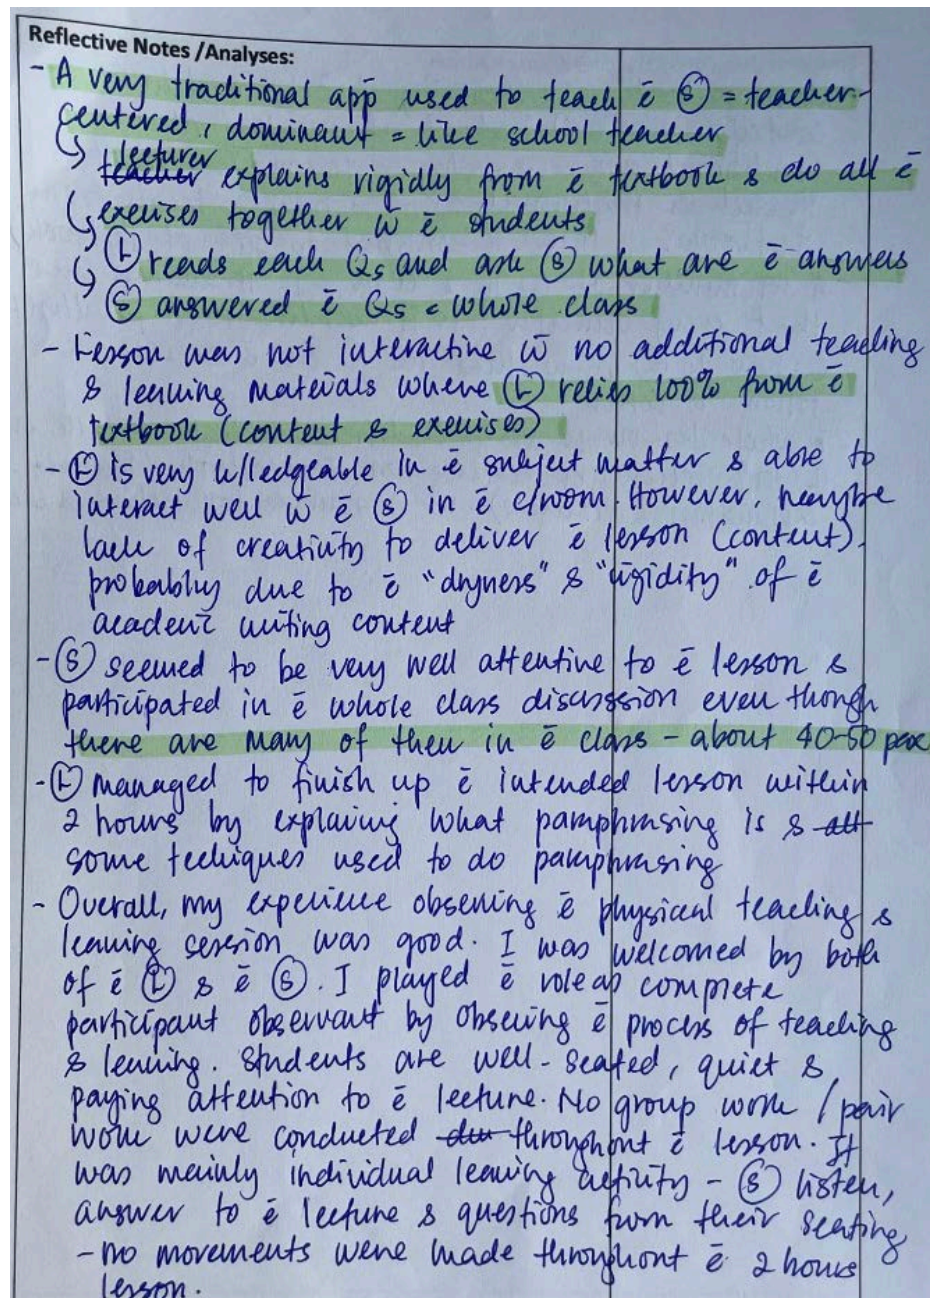 Reflective Notes /Analyses:
- A very traditional app used to teach ē Ⓢ = teacher-
centered, dominant = like school teacher
↳ lecturer
teacher explains rigidly from ē textbook & do all ē
↳ exercises together w̄ ē students
↳ Ⓛ reads each Qs and ask Ⓢ what are ē answers
Ⓢ answered ē Qs = whole class
- Lesson was not interactive w̄ no additional teaching
& learning materials where Ⓛ relies 100% from ē
textbook (content & exercises)
- Ⓛ is very k/ledgeable in ē subject matter & able to
interact well w̄ ē Ⓢ in ē c/room. However, maybe
lack of creativity to deliver ē lesson (content)
probably due to ē "dryness" & "rigidity" of ē
academic writing content
- Ⓢ seemed to be very well attentive to ē lesson &
participated in ē whole class discussion even though
there are many of them in ē class - about 40-50 pax
- Ⓛ managed to finish up ē intended lesson within
2 hours by explaining what paraphrasing is & all
some techniques used to do paraphrasing
- Overall, my experience observing ē physical teaching &
learning session was good. I was welcomed by both
of ē Ⓛ & ē Ⓢ. I played ē role as complete
participant observant by observing ē process of teaching
& learning. Students are well-seated, quiet &
paying attention to ē lecture. No group work / pair
work were conducted du throughout ē lesson. It
was mainly individual learning activity - Ⓢ listen,
answer to ē lecture & questions from their seating
- no movements were made throughout ē 2 hours
lesson.